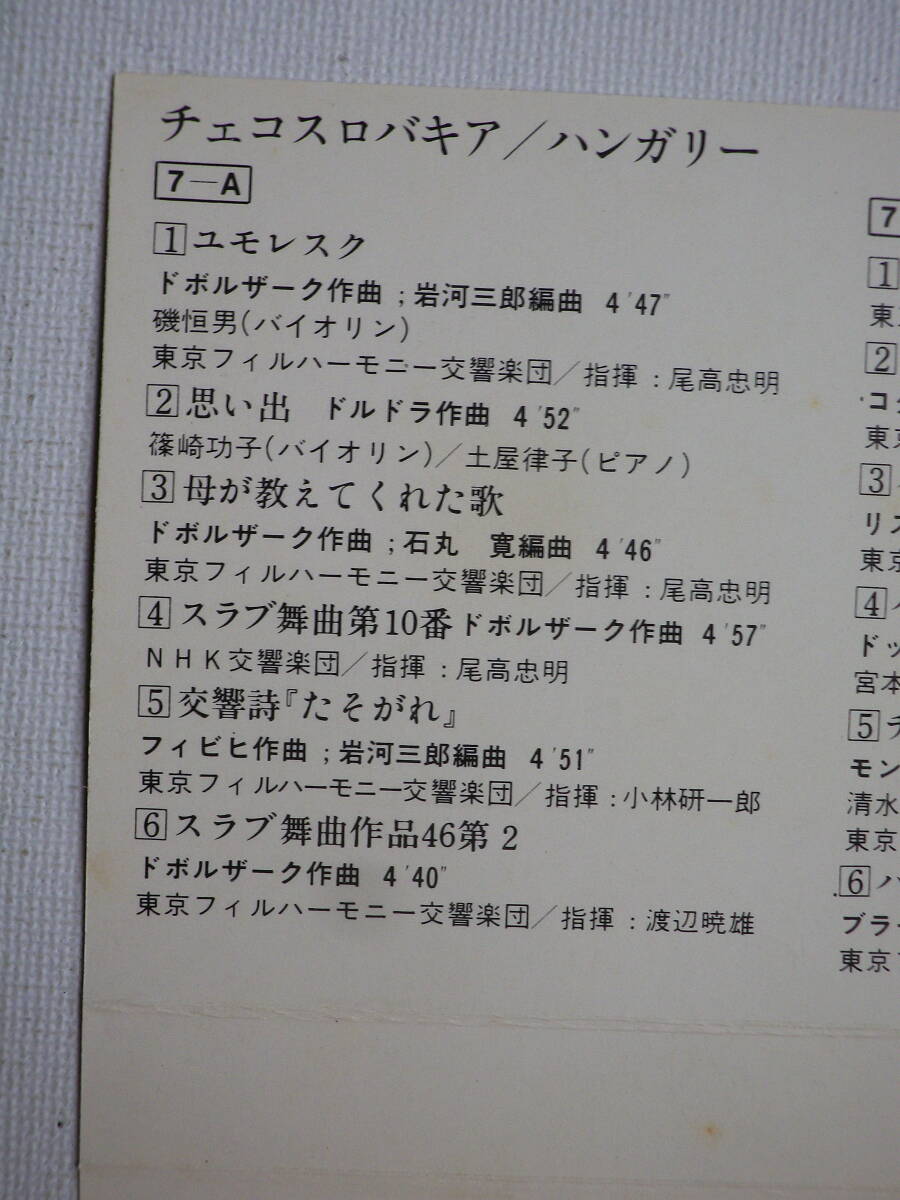 チェコスロバキア／ハンガリー
7―A
1 ユモレスク
ドボルザーク作曲；岩河三郎編曲 4′47″
磯恒男(バイオリン)
東京フィルハーモニー交響楽団／指揮：尾高忠明
2 思い出 ドルドラ作曲 4′52″
篠崎功子(バイオリン)／土屋律子(ピアノ)
3 母が教えてくれた歌
ドボルザーク作曲；石丸 寛編曲 4′46″
東京フィルハーモニー交響楽団／指揮：尾高忠明
4 スラブ舞曲第10番 ドボルザーク作曲 4′57″
ＮＨＫ交響楽団／指揮：尾高忠明
5 交響詩『たそがれ』
フィビヒ作曲；岩河三郎編曲 4′51″
東京フィルハーモニー交響楽団／指揮：小林研一郎
6 スラブ舞曲作品46第2
ドボルザーク作曲 4′40″
東京フィルハーモニー交響楽団／指揮：渡辺暁雄
7
1
東
2
コ
東
3
リス
東京
4
ドッ
宮本
5 チ
モン
清水
東京
6 ハ
ブラ
東京